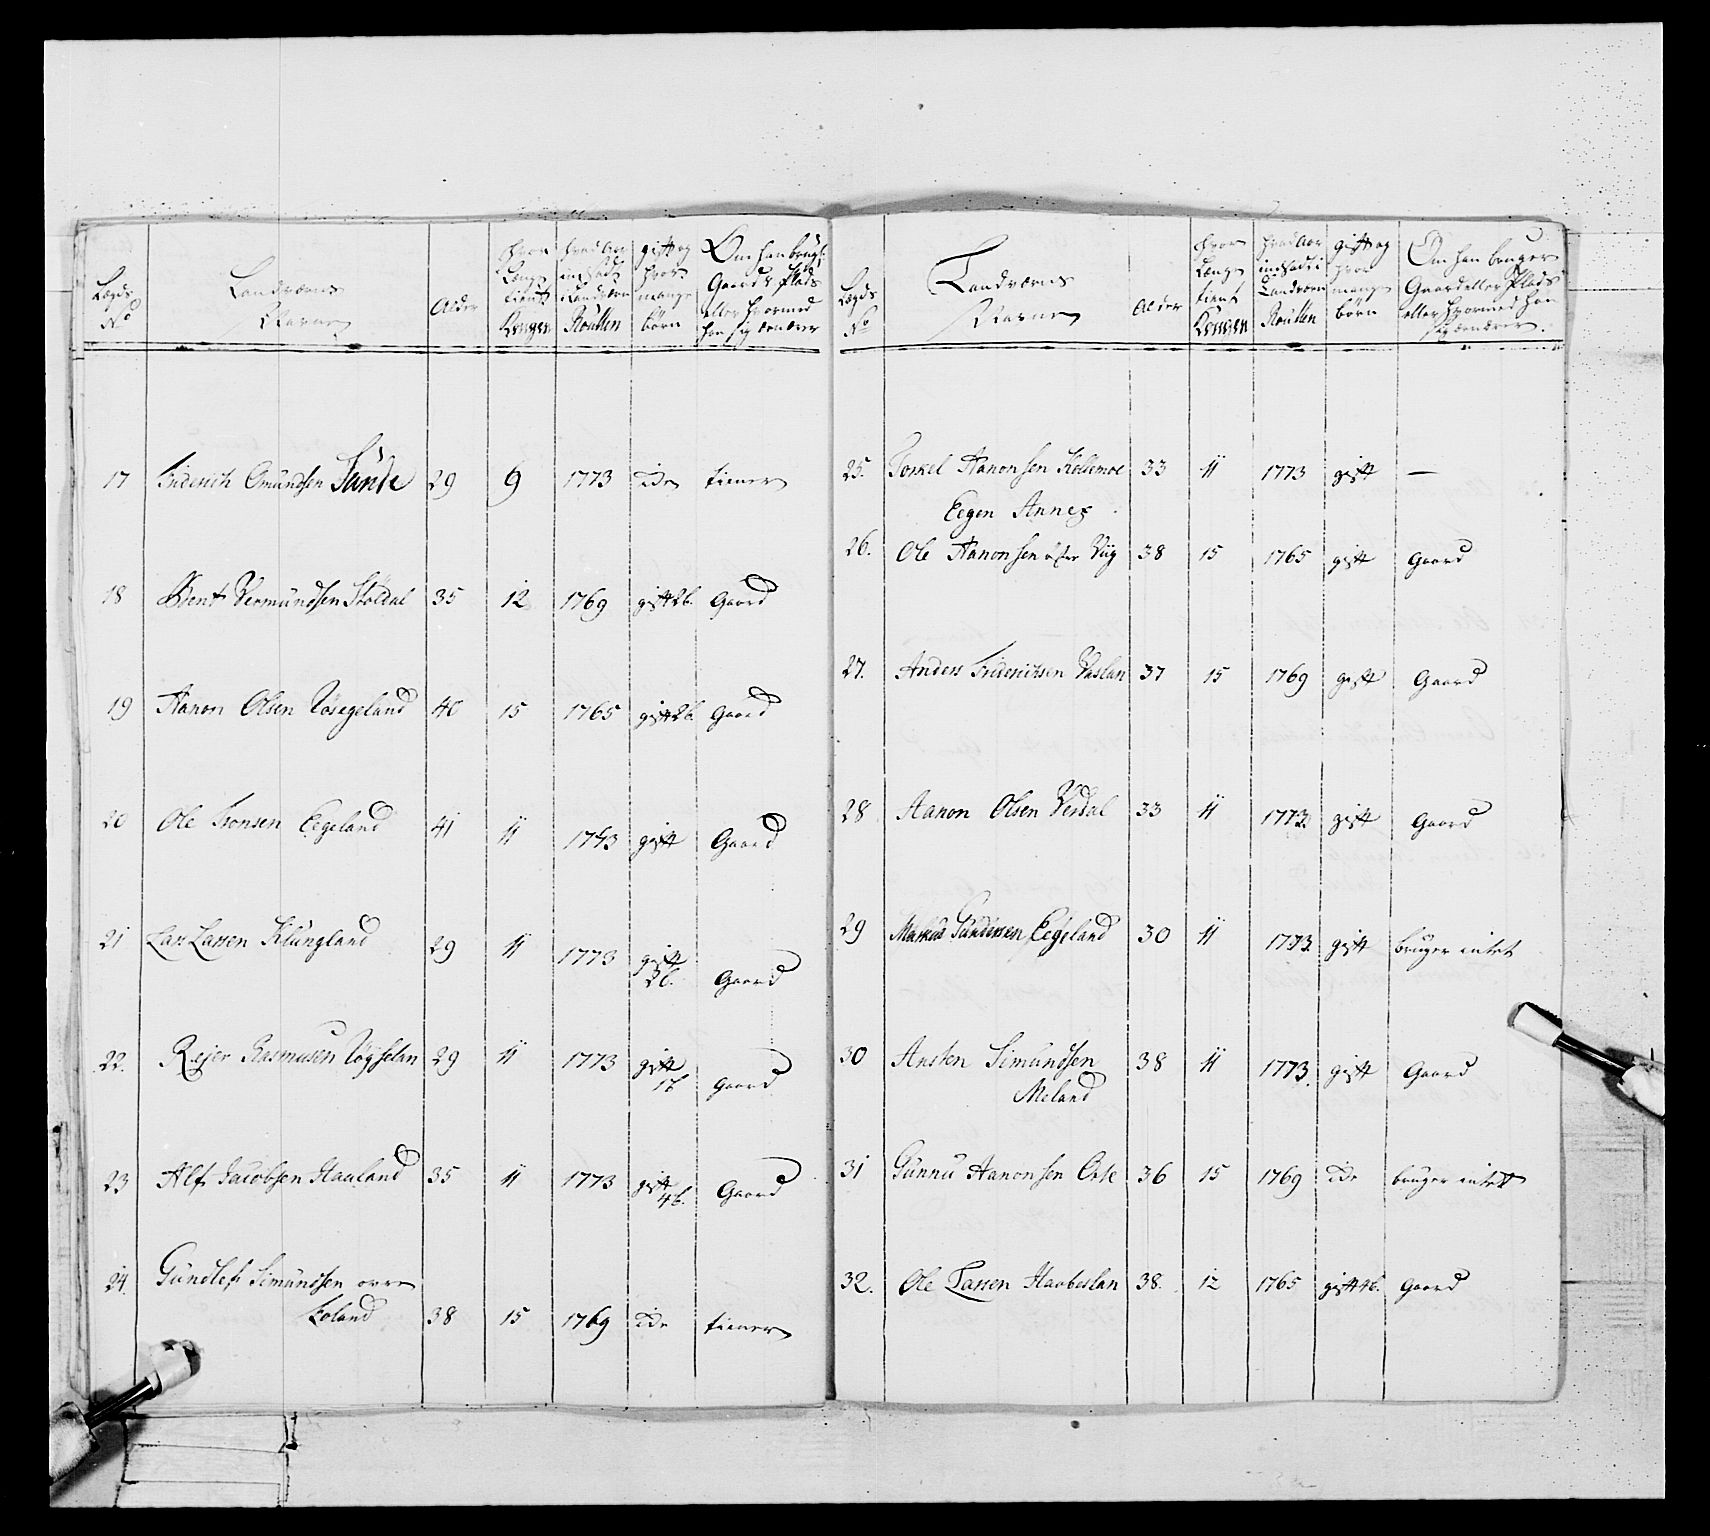 Lægds No
Landværns Navne
Alder
hvor Længe tient Kongen
hvad Aar indsadt i Landværn Roullen
gift og hvor mange børn
Om han brug: Gaard Plads eller hvormed han sig ernærer
17 Friderich Omundsen Sunde 29 9 1773 ide tiener
18 Bent Vermundsen Stöldal 35 12 1769 gift 2b. Gaard
19 Aanon Olsen Vösegeland 40 15 1765 gift 2b. Gaard
20 Ole Tronsen Eegeland 41 11 1773 gift Gaard
21 Lars Larsen Klungland 29 11 1773 gift 2b. Gaard
22. Rejer Rasmusen 29 11 1773 gift 1b Gaard
23 Alf Jacobsen Hauland 35 11 1773 gift 4b. Gaard
24. Gundlef Simundsen
Foland 38 15 1769 ide tiener
Lægds No
Landværns Navne
Alder
hvor Længe tient Kongen
hvad Aar indsadt i Landværn Roullen
gift og hvor mange børn
Om han bruger Gaard eller Plads eller hvormed han sig ernærer.
25. Torkel Aanonsen Kollemoe 33 11 1773 gift —
Eegen Annex
26. Ole Aanonsen Viig 38 15 1765 gift Gaard
27. Anders Friderichsen Vaslan 37 15 1769 gift Gaard
28 Aanon Olsen Verdal 33 11 1773. gift Gaard
29 Markus Gundersen Eegeland 30 11 1773. gift bruger intet
30 Ansten Simundsen
Meland 38 11 1773. gift Gaard
31 Gunnu Aanonsen Orte 36 15 1769 ide bruger intet
32. Ole Larsen Haabeslan 38. 12 1765 gift 4b. Gaard